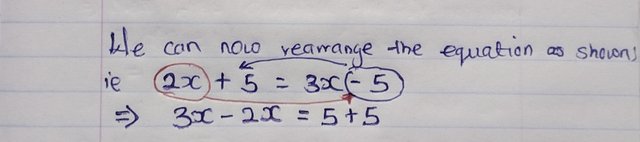 We can now rearrange the equation as shown;
ie 2x + 5 = 3x - 5
⇒ 3x - 2x = 5 + 5